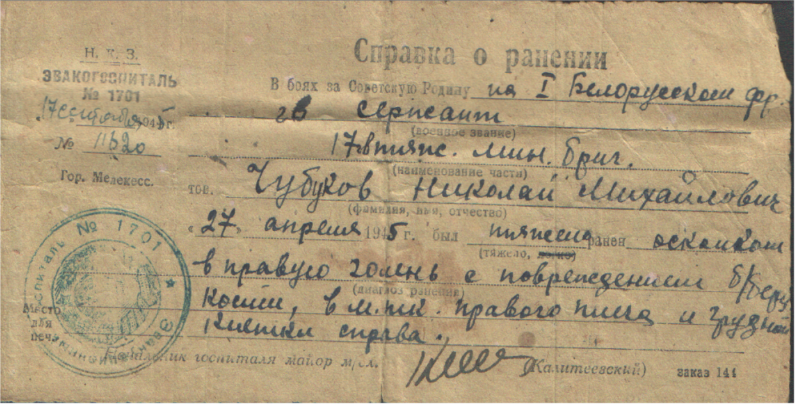 Н. К. З.
ЭВАКОГОСПИТАЛЬ
№ 1701
17 сентября 1945 г.
№ 11620
Гор. Мелекесс.
Справка о ранении
В боях за Советскую Родину на I Белорусском фр.
гв сержант
(военное звание)
17 мин. бриг.
(наименование части)
тов. Чубуков Николай Михайлович
(фамилия, имя, отчество)
"27" апреля 1945 г. был тяжело ранен осколком
(тяжело, легко)
в правую голень с повреждением б/берц
(диагноз ранения)
кости, в м.тк. правого плеча и грудной
клетки справа.
Место
для
печати
Эвакогоспиталь № 1701
Начальник госпиталя майор м/сл. (Калитеевский) заказ 141